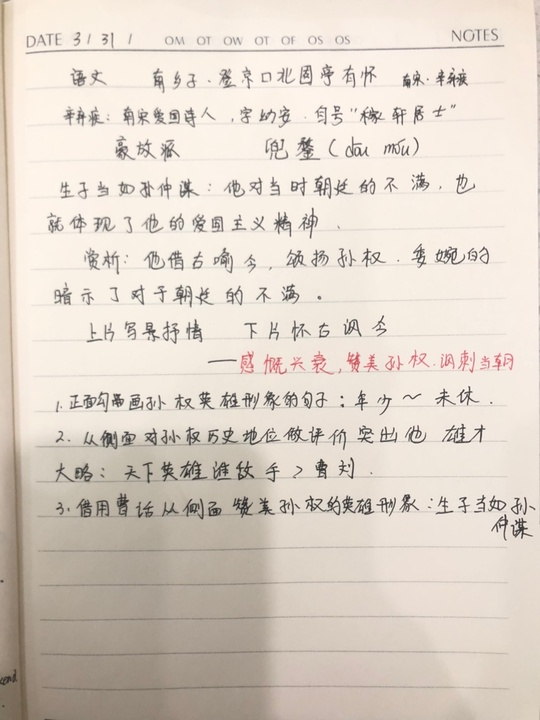 DATE 3 | 31 | MO MT OW OT OF OS OS NOTES
语文 南乡子·登京口北固亭有怀 南宋·辛弃疾
辛弃疾：南宋爱国诗人，字幼安．自号“稼轩居士”
豪放派 兜鍪（dōu móu）
生子当如孙仲谋：他对当时朝廷的不满，也
就体现了他的爱国主义精神．
赏析：他借古喻今，颂扬孙权．委婉的
暗示了对于朝廷的不满。
上片写景抒情 下片怀古讽今
——感慨兴衰，赞美孙权．讽刺当朝
1．正面勾画孙权英雄形象的句子：年少～未休．
2．从侧面对孙权历史地位做评价突出他 雄才
大略：天下英雄谁敌手？曹刘．
3．借用曹话从侧面赞美孙权的英雄形象：生子当如孙
仲谋
cend